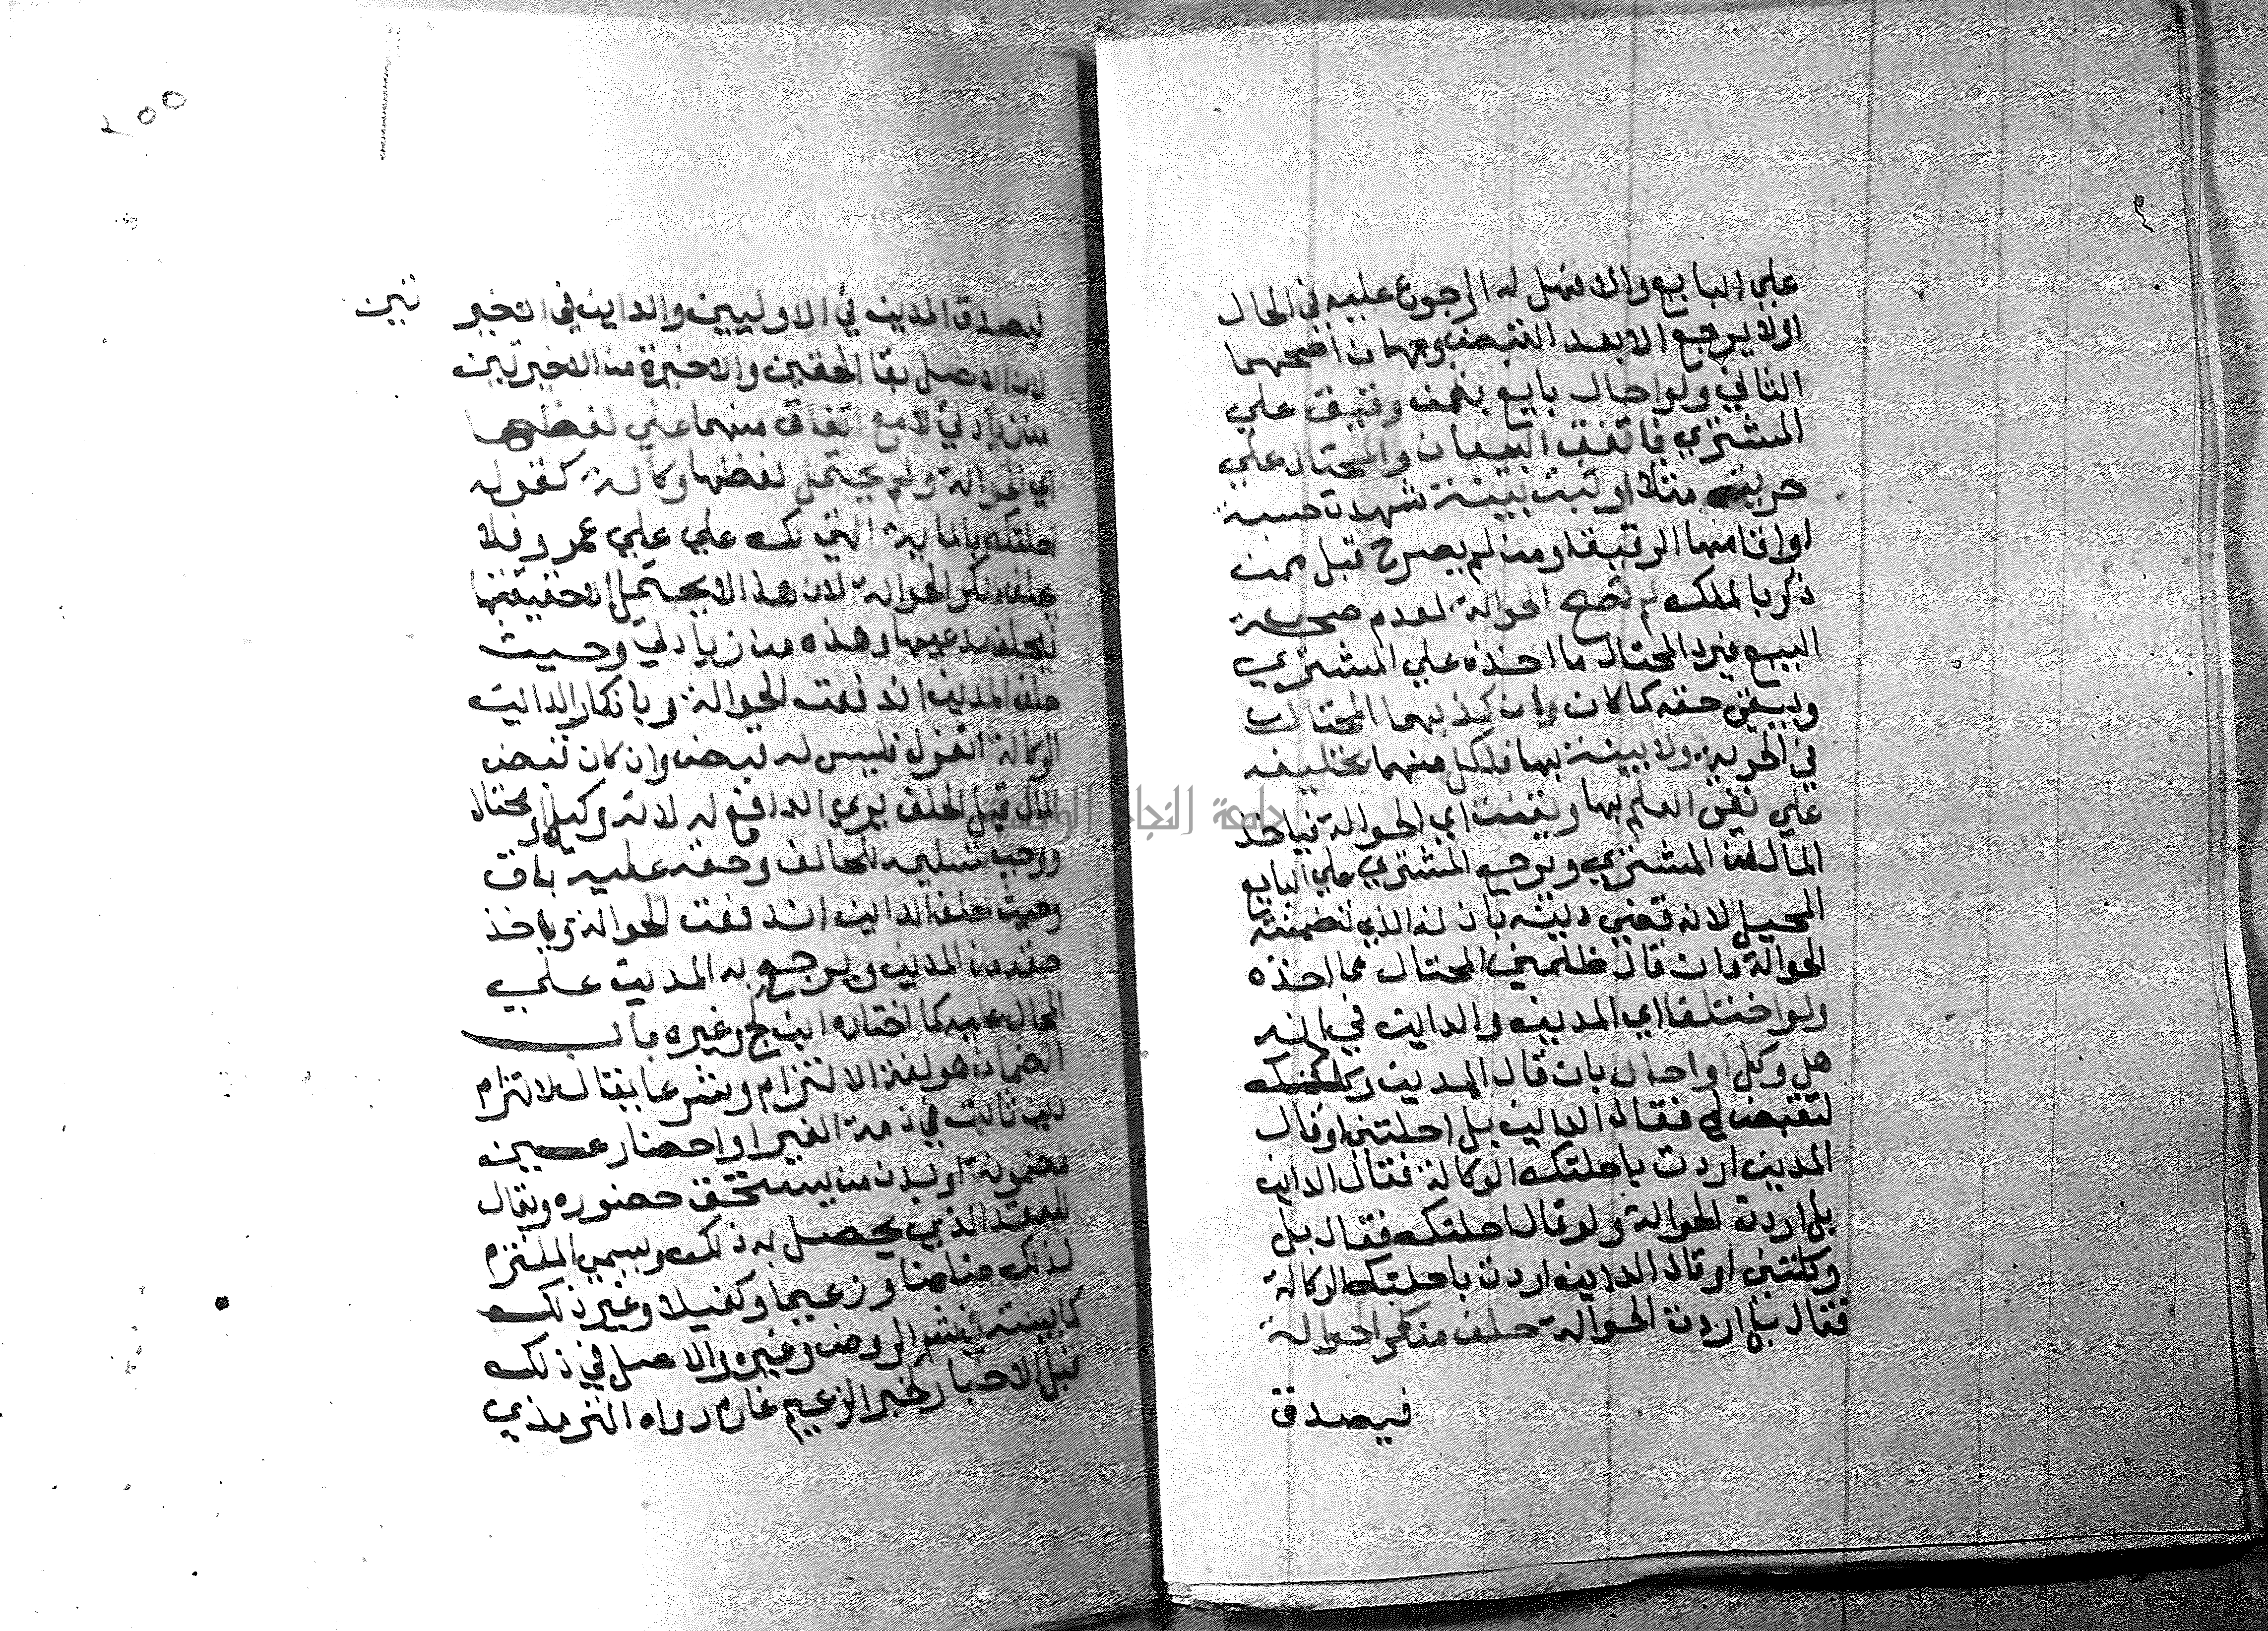 علي البايع والا فهل له الرجوع عليه في الحال
اولا يرجع الا بعد القبض وجهان اصحهما
الثاني ولو احال بايع بثمن رقيق علي
المشتري فاتفق البيعان والمحتال علي
حريته مثلا او ثبتت ببينة شهدت حسبة
او اقامها الرقيق او من لم يصرح قبل ممن
ذكر بالملك لم تصح الحوالة لعدم صحة
البيع فيرد المحتال ما اخذه علي المشتري
ويبقي حقه كما كان وان كذبهما المحتال
في الحرية ولا بينة بها فلكل منهما تحليفه
علي نفي العلم بها وبقيت اي الحوالة فياخذ
المال من المشتري ويرجع المشتري علي البايع
المحيل لانه قضي دينه باذنه الذي تضمنته
الحوالة وان قال ظلمني المحتال بما اخذه
ولو اختلفا اي المدين والداين في انه
هل وكل او احال بان قال المدين وكلتك
لتقبض لي فقال الداين بل احلتني او قال
المدين اردت باحلتك الوكالة فقال الداين
بل اردت الحوالة ولو قال احلتك فقال بل
وكلتني او قال الداين اردت باحلتك الوكالة
فقال بل اردت الحوالة حلف منكر الحوالة
فيصدق
٢٥٥
فيصدق المدين في الاوليين والداين في الاخير تين
لان الاصل بقا الحقين والاخيرة من الاخيرتين
من زيادتي لا مع اتفاق منهما علي لفظها
اي الحوالة ولم يحتمل لفظها وكالة كقوله
احلتك بالماية التي لك علي علي عمرو فلا
يحلف منكر الحوالة لان هذا لا يحتمل الا حقيقتها
فيحلف مدعيها وهذه من زيادتي وحيث
حلف المدين اندفعت الحوالة وبانكار الداين
الوكالة انعزل فليس له قبض وان كان قبض
المال قبل الحلف بري الدافع له لانه وكيل او محتال
ووجب تسليمه للحالف وحقه عليه باق
وحيث حلف الداين اندفعت الحوالة وياخذ
حقه من المدين ويرجع به المدين علي
المحال عليه كما اختاره ابن كج وغيره باب
الضمان هو لغة الالتزام وشرعا يقال لالتزام
دين ثابت في ذمة الغير او احضار عين
مضمونة او بدن من يستحق حضوره ويقال
للعقد الذي يحصل به ذلك ويسمي الملتزم
لذلك ضامنا وزعيما وكفيلا وغير ذلك
كما بينته في شرح الروض وغيره والاصل في ذلك
قبل الاجماع اخبار كخبر الزعيم غارم رواه الترمذي